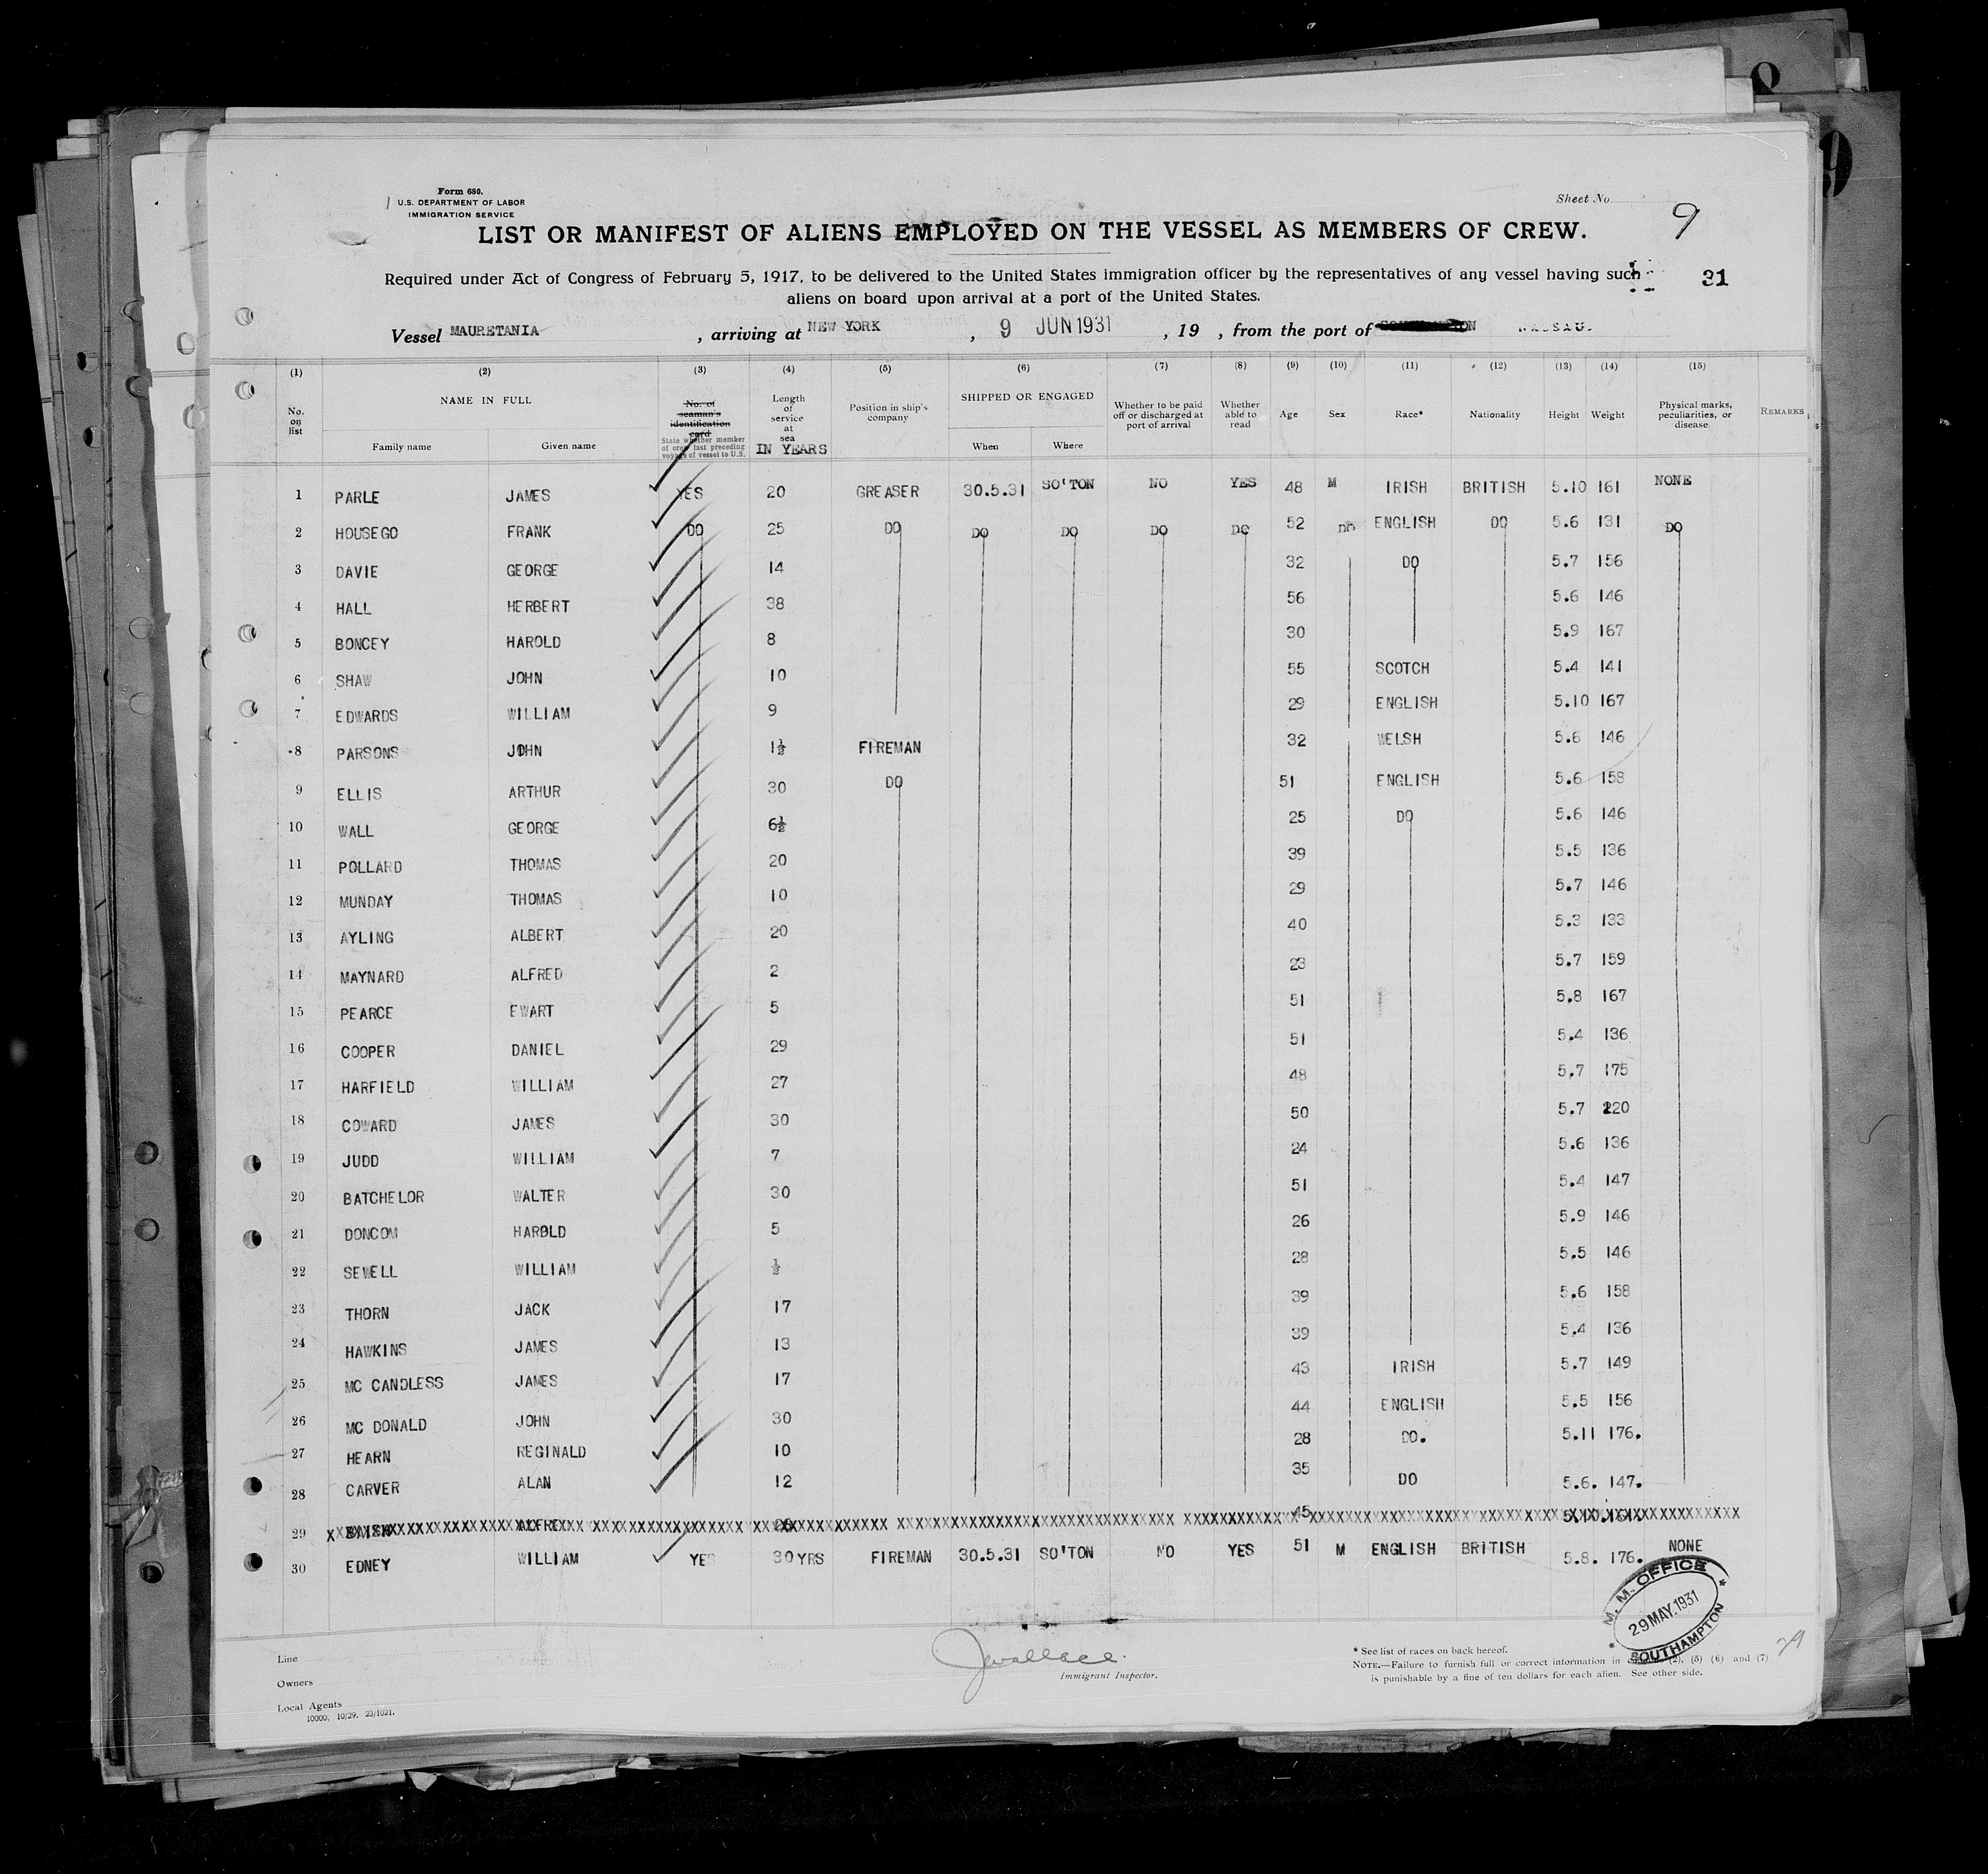 8
9
Form 680.
U.S. DEPARTMENT OF LABOR
IMMIGRATION SERVICE
Sheet No.
9
LIST OR MANIFEST OF ALIENS EMPLOYED ON THE VESSEL AS MEMBERS OF CREW.
Required under Act of Congress of February 5, 1917, to be delivered to the United States immigration officer by the representatives of any vessel having such
aliens on board upon arrival at a port of the United States.
31
Vessel MAURETANIA , arriving at NEW YORK , 9 JUN 1931 , 19 , from the port of NASSAU.
(1) (2) (3) (4) (5) (6) (7) (8) (9) (10) (11) (12) (13) (14) (15)
No. on list NAME IN FULL Family name Given name No. of seaman's identification card State whether member of crew last preceding voyage of vessel to U.S. Length of service at sea IN YEARS Position in ship's company SHIPPED OR ENGAGED When Where Whether to be paid off or discharged at port of arrival Whether able to read Age Sex Race* Nationality Height Weight Physical marks, peculiarities, or disease REMARKS
1 PARLE JAMES YES 20 GREASER 30.5.31 SO'TON NO YES 48 M IRISH BRITISH 5.10 161 NONE
2 HOUSEGO FRANK DO 25 DO DO DO DO DO 52 DO ENGLISH DO 5.6 131 DO
3 DAVIE GEORGE 14 32 DO 5.7 156
4 HALL HERBERT 38 56 5.6 146
5 BONCEY HAROLD 8 30 5.9 167
6 SHAW JOHN 10 55 SCOTCH 5.4 141
7 EDWARDS WILLIAM 9 29 ENGLISH 5.10 167
8 PARSONS JOHN 1½ FIREMAN 32 WELSH 5.6 146
9 ELLIS ARTHUR 30 DO 51 ENGLISH 5.6 158
10 WALL GEORGE 6½ 25 DO 5.6 146
11 POLLARD THOMAS 20 39 5.5 136
12 MUNDAY THOMAS 10 29 5.7 146
13 AYLING ALBERT 20 40 5.3 133
14 MAYNARD ALFRED 2 23 5.7 159
15 PEARCE EWART 5 51 5.8 167
16 COOPER DANIEL 29 51 5.4 136
17 HARFIELD WILLIAM 27 48 5.7 175
18 COWARD JAMES 30 50 5.7 220
19 JUDD WILLIAM 7 24 5.6 136
20 BATCHELOR WALTER 30 51 5.4 147
21 DONCOM HAROLD 5 26 5.9 146
22 SEWELL WILLIAM ½ 28 5.5 146
23 THORN JACK 17 39 5.6 158
24 HAWKINS JAMES 13 39 5.4 136
25 MC CANDLESS JAMES 17 43 IRISH 5.7 149
26 MC DONALD JOHN 30 44 ENGLISH 5.5 156
27 HEARN REGINALD 10 28 DO. 5.11 176.
28 CARVER ALAN 12 35 DO 5.6. 147.
29 ALFRED 45
30 EDNEY WILLIAM YES 30 YRS FIREMAN 30.5.31 SO'TON NO YES 51 M ENGLISH BRITISH 5.8. 176. NONE
M. M. OFFICE
29 MAY. 1931
SOUTHAMPTON
Line
Owners
Local Agents
10000, 10/29. 23/1021.
JWallace.
Immigrant Inspector.
* See list of races on back hereof.
NOTE.—Failure to furnish full or correct information in (2), (5) (6) and (7)
is punishable by a fine of ten dollars for each alien. See other side.
29